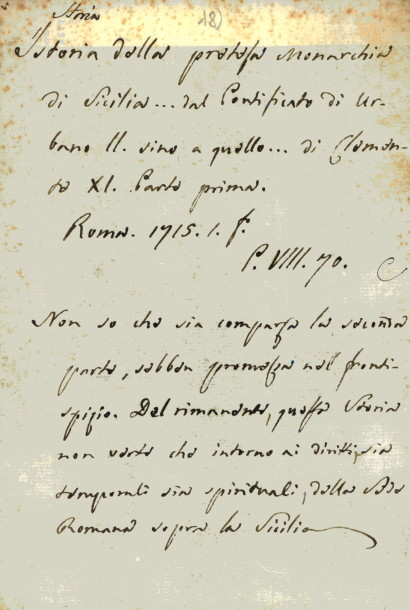 Storia
18)
Istoria della pretesa Monarchia
di Sicilia... dal Pontificato di Ur-
bano II. sino a quello... di Clemen-
te XI. Parte prima.
Roma. 1715. 1. f.
P. VIII. 70.
C
Non so che sia comparsa la seconda
parte, sebben promessa nel fronti-
spizio. Del rimanente, questa Storia
non verte che intorno ai diritti, sia
temporali sia spirituali, della Sede
Romana sopra la Sicilia